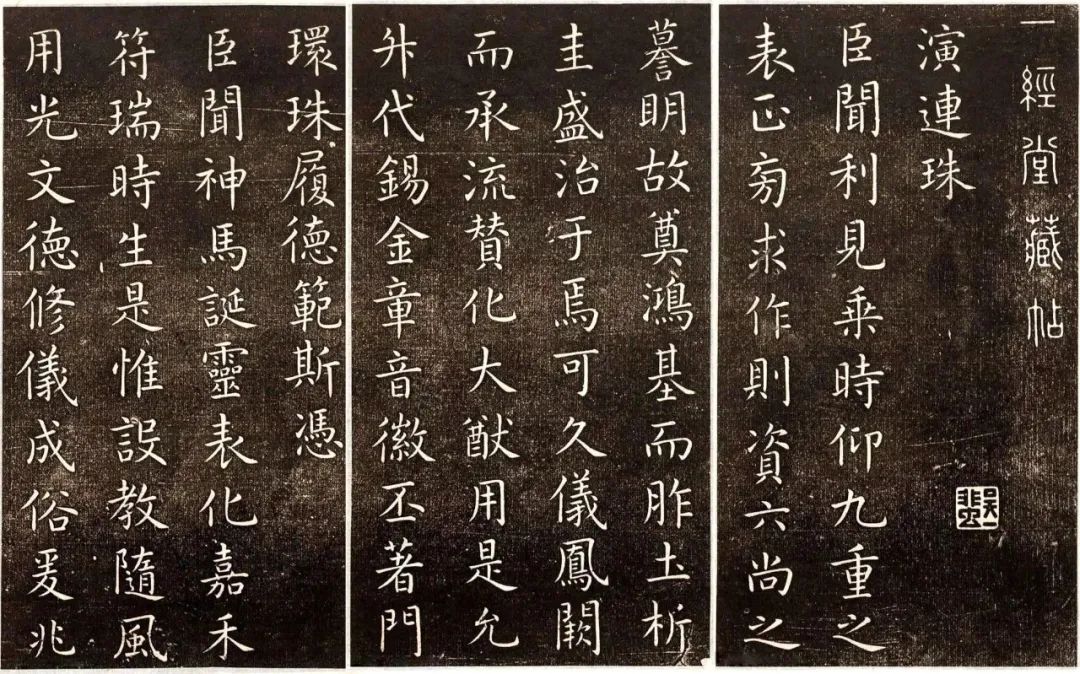 一經堂藏帖
演連珠
臣聞利見乗時仰九重之
表正旁求作則資六尚之
謩明故奠鴻基而胙土析
圭盛治于焉可久儀鳳闕
而承流賛化大猷用是允
升代錫金章音徽丕著門
環珠履德範斯憑
臣聞神馬誕靈表化嘉禾
符瑞時生是惟設教隨風
用光文德修儀成俗爰兆